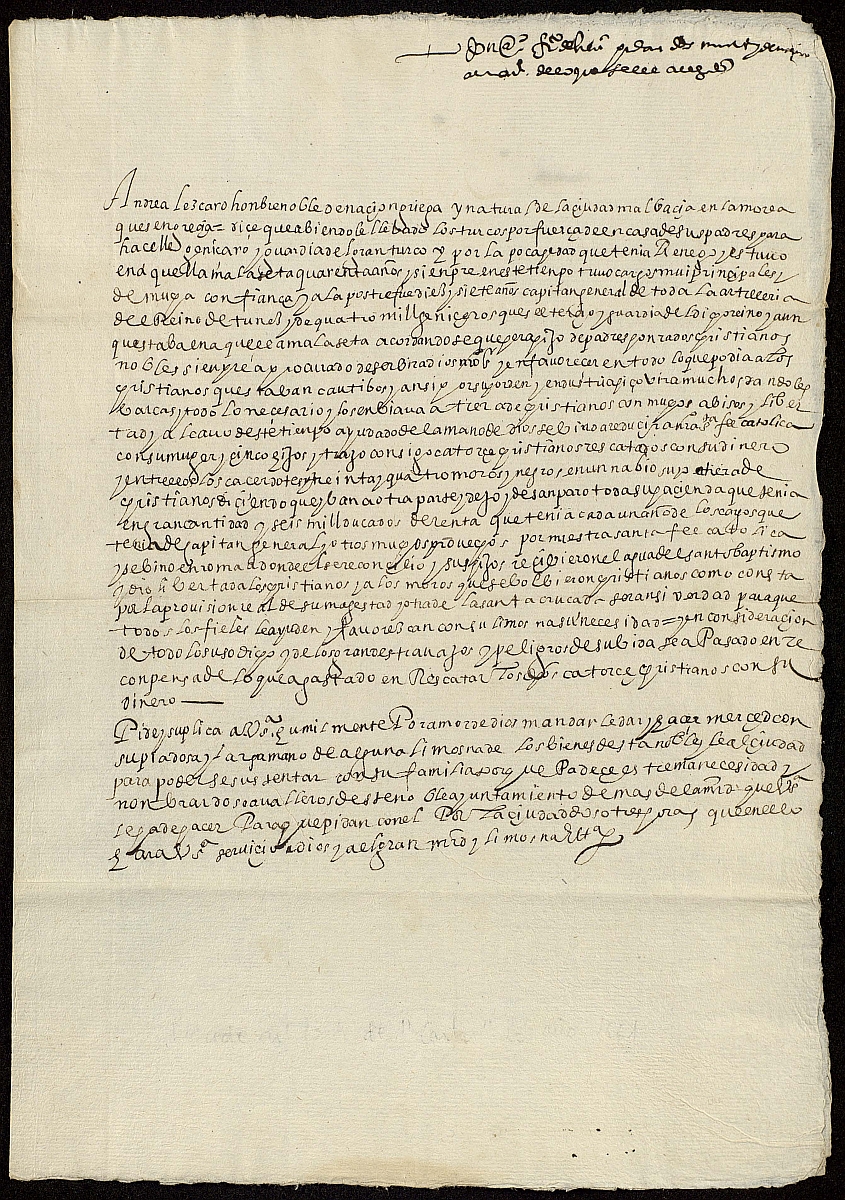 Andrea Lozcaro honbre noble de naçion griega y natural de la çiudad malbaçia en la morea
ques en greçia dice que abiendole llebado los turcos por fuerça de en casa de sus padres para
hacelle geniçaro y guardia del gran turco y por la poca hedad que tenia Renego y estuvo
en aquella mala seta quarenta años y sienpre en este tienpo tuvo cargos mui principales y
de mucha confiança y a la postre fue diez y siete años capitan general de toda la artreceria
del Reino de tunez y de quatro mill negros ques el terçio y guardia del dicho reino y aun
questaba en aquella mala seta acordandose que hera hijo de padres honrados cristianos
nobles sienpre a procurado de serbir a dios y en faboreçer en todo lo que podia a los
cristianos questavan cautibos y ansi por su horden y endustria hiço vir a muchos dandoles
barcas y todo lo neçesario y los enbiava a tiera de cristianos con muchos abisos y liber
tad y al cavo deste tienpo ayudado de la mano de dios se bino a reduçir a nra santa fe catolica
con su muger y cinco hijos y trajo consigo catorçe cristianos rescatados con su dinero
y entre ellos sacerdotes y treinta y quatro moros y negros en un nabio suyo a tiera de
cristianos diciendo que yban a otra parte y dejo y desanparo toda su haçienda que tenia
en gran cantidad y seis mill ducados de renta que tenia cada un año de los cargos que
tenia de capitan general y otros muchos probechos por nuestra santa fee catolica
y se bino en roma donde el se reconcilio y sus hijos reçibieron el agua del santo baptismo
y dio libertad a los cristianos y a los moros que se bolbieron cristianos como consta
por la provision real de su magestad y otra de la santa cruçada ser ansi verdad para que
todos los fieles le ayuden y favorezcan con su limosna su neçesidad = y en consideraçion
de todo lo susodicho y de los grandes travajos y peligros de su bida se a Pasado en re
conpensa de lo que a gastado en Rescatar los dichos catorce cristianos con su
dinero
Pide y suplica a Vsª humilmente Por amor de dios mandar le dar y haçer merçed con
su piadosa y larga mano de alguna limosna de los bienes desta noble y leal çiudad
para poderse sustentar con su familia porque Padeçe estrema necesidad y
nonbrar dos cavalleros deste noble ayuntamiento de mas de la mrd que Vsª
les a de haçer Para que pidan con el Por la çiudad dos o tres horas que en ello
hara Vsª serviçio a dios y a el gran mrd y limosna